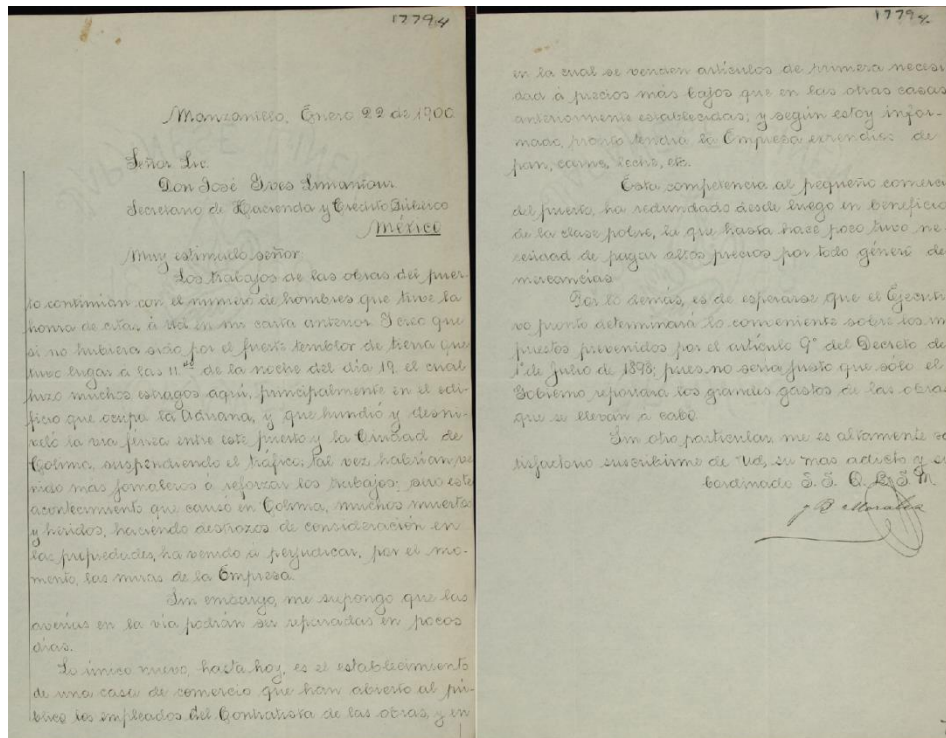 17794
Manzanillo, Enero 22 de 1900
Señor Lic.
Don José Ives Limantour
Secretario de Hacienda y Crédito Público
México
Muy estimado señor
Los trabajos de las obras del puer-
to continúan con el número de hombres que tuve la
honra de citar á Ud en mi carta anterior. I creo que
si no hubiera sido por el fuerte temblor de tierra que
tuvo lugar a las 11 de la noche del día 19. el cual
hizo muchos estragos aquí, principalmente en el edi-
ficio que ocupa la Aduana, y que hundió y desni-
veló la vía férrea entre este puerto y la Ciudad de
Colima, suspendiendo el tráfico, tal vez habrían ve-
nido más jornaleros á reforzar los trabajos; pero este
acontecimiento que causó en Colima, muchos muertos
y heridos, haciendo destrozos de consideración en
las propiedades, ha venido á perjudicar, por el mo-
mento, las miras de la Empresa.
Sin embargo, me supongo que las
averías en la vía podrán ser reparadas en pocos
días.
Lo único nuevo, hasta hoy, es el establecimiento
de una casa de comercio que han abierto al pú-
blico los empleados del Contratista de las obras, y en
17794
en la cual se venden artículos de primera necesi
dad á precios más bajos que en las otras casas
anteriormente establecidas; y según estoy infor-
mado, pronto tendrá la Empresa expendios de
pan, carne, leche, etc.
Esta competencia al pequeño comerci
del puerto, ha redundado desde luego en beneficio
de la clase pobre, la que hasta hace poco tuvo ne
cesidad de pagar altos precios por todo género de
mercancías.
Por lo demás, es de esperarse que el Ejecuti
vo pronto determinará lo conveniente sobre los im
puestos prevenidos por el artículo 9º del Decreto de
1º de Julio de 1898; pues no sería justo que sólo el
Gobierno reportara los grandes gastos de las obras
que se llevan á cabo.
Sin otro particular, me es altamente sa
tisfactorio suscribirme de Ud, su mas adicto y su
bordinado S. S. Q. B. S. M
J B Morales